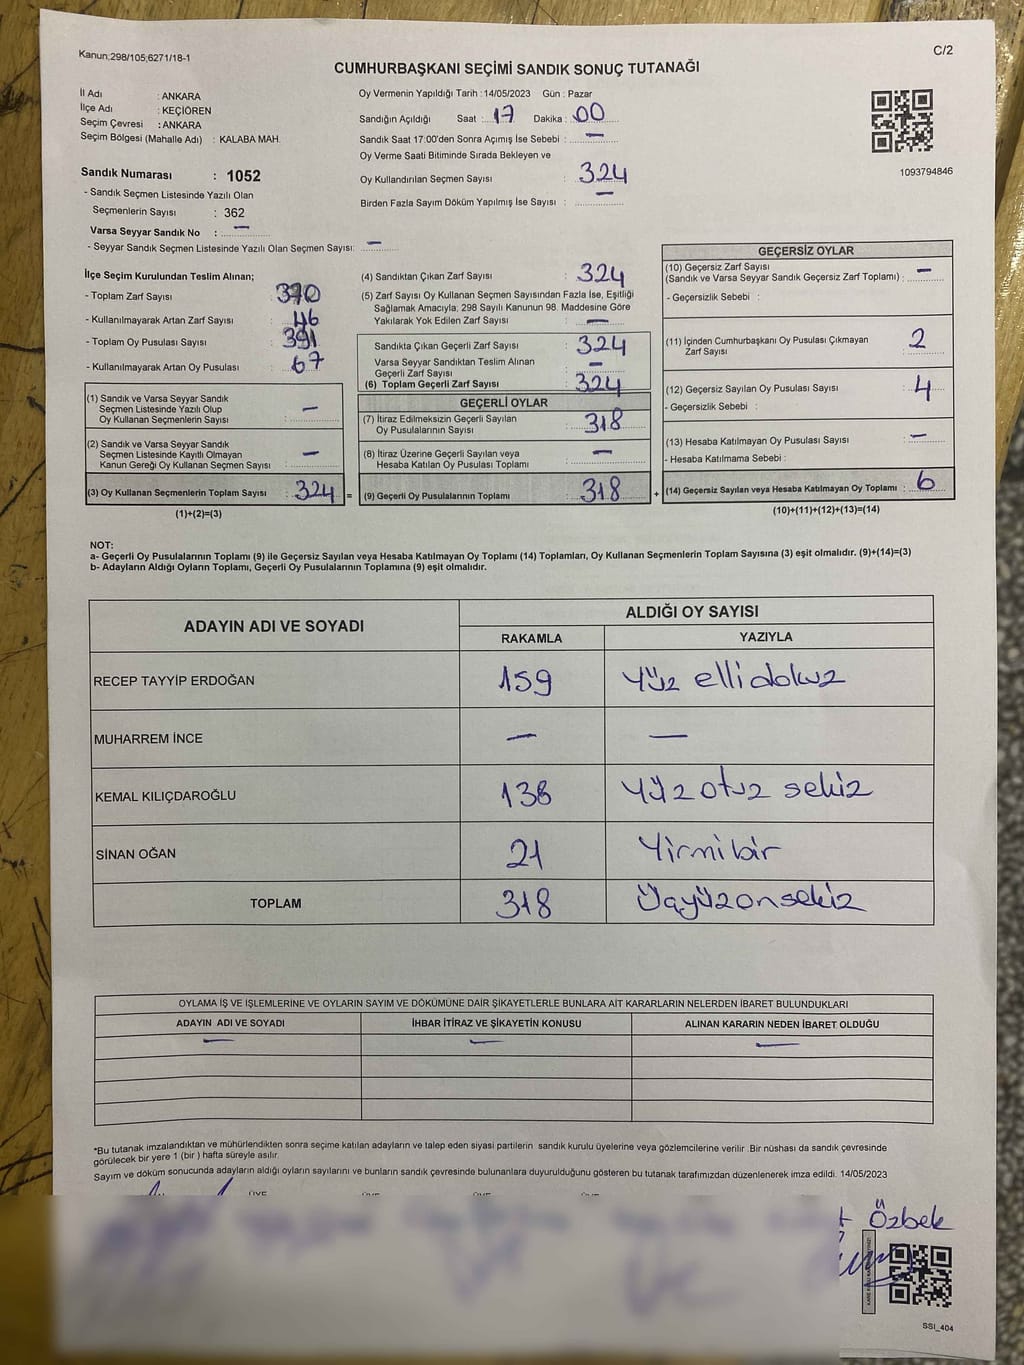 Kanun;298/105;6271/18-1
C/2
CUMHURBAŞKANI SEÇİMİ SANDIK SONUÇ TUTANAĞI
İl Adı : ANKARA
İlçe Adı : KEÇİÖREN
Seçim Çevresi : ANKARA
Seçim Bölgesi (Mahalle Adı) : KALABA MAH.
Sandık Numarası : 1052
- Sandık Seçmen Listesinde Yazılı Olan
Seçmenlerin Sayısı : 362
Varsa Seyyar Sandık No : —
- Seyyar Sandık Seçmen Listesinde Yazılı Olan Seçmen Sayısı: —
Oy Vermenin Yapıldığı Tarih :14/05/2023 Gün : Pazar
Sandığın Açıldığı Saat : 17 Dakika : 00
Sandık Saat 17:00'den Sonra Açımış İse Sebebi : —
Oy Verme Saati Bitiminde Sırada Bekleyen ve
Oy Kullandırılan Seçmen Sayısı : 324
Birden Fazla Sayım Döküm Yapılmış İse Sayısı : —
1093794846
İlçe Seçim Kurulundan Teslim Alınan;
- Toplam Zarf Sayısı : 370
- Kullanılmayarak Artan Zarf Sayısı : 46
- Toplam Oy Pusulası Sayısı : 391
- Kullanılmayarak Artan Oy Pusulası : 67
(1) Sandık ve Varsa Seyyar Sandık
Seçmen Listesinde Yazılı Olup
Oy Kullanan Seçmenlerin Sayısı : —
(2) Sandık ve Varsa Seyyar Sandık
Seçmen Listesinde Kayıtlı Olmayan
Kanun Gereği Oy Kullanan Seçmen Sayısı : —
(3) Oy Kullanan Seçmenlerin Toplam Sayısı : 324 =
(1)+(2)=(3)
(4) Sandıktan Çıkan Zarf Sayısı : 324
(5) Zarf Sayısı Oy Kullanan Seçmen Sayısından Fazla İse, Eşitliği
Sağlamak Amacıyla; 298 Sayılı Kanunun 98. Maddesine Göre
Yakılarak Yok Edilen Zarf Sayısı : —
Sandıkta Çıkan Geçerli Zarf Sayısı : 324
Varsa Seyyar Sandıktan Teslim Alınan
Geçerli Zarf Sayısı : —
(6) Toplam Geçerli Zarf Sayısı : 324
GEÇERLİ OYLAR
(7) İtiraz Edilmeksizin Geçerli Sayılan
Oy Pusulalarının Sayısı : 318
(8) İtiraz Üzerine Geçerli Sayılan veya
Hesaba Katılan Oy Pusulası Toplamı : —
(9) Geçerli Oy Pusulalarının Toplamı : 318 +
GEÇERSİZ OYLAR
(10) Geçersiz Zarf Sayısı
(Sandık ve Varsa Seyyar Sandık Geçersiz Zarf Toplamı) : —
- Geçersizlik Sebebi :
(11) İçinden Cumhurbaşkanı Oy Pusulası Çıkmayan
Zarf Sayısı : 2
(12) Geçersiz Sayılan Oy Pusulası Sayısı : 4
- Geçersizlik Sebebi :
(13) Hesaba Katılmayan Oy Pusulası Sayısı : —
- Hesaba Katılmama Sebebi :
(14) Geçersiz Sayılan veya Hesaba Katılmayan Oy Toplamı : 6
(10)+(11)+(12)+(13)=(14)
NOT:
a- Geçerli Oy Pusulalarının Toplamı (9) ile Geçersiz Sayılan veya Hesaba Katılmayan Oy Toplamı (14) Toplamları, Oy Kullanan Seçmenlerin Toplam Sayısına (3) eşit olmalıdır. (9)+(14)=(3)
b- Adayların Aldığı Oyların Toplamı, Geçerli Oy Pusulalarının Toplamına (9) eşit olmalıdır.
ADAYIN ADI VE SOYADI ALDIĞI OY SAYISI
RAKAMLA YAZIYLA
RECEP TAYYİP ERDOĞAN 159 Yüz elli dokuz
MUHARREM İNCE — —
KEMAL KILIÇDAROĞLU 138 Yüz otuz sekiz
SİNAN OĞAN 21 Yirmi bir
TOPLAM 318 Üçyüzonsekiz
OYLAMA İŞ VE İŞLEMLERİNE VE OYLARIN SAYIM VE DÖKÜMÜNE DAİR ŞİKAYETLERLE BUNLARA AİT KARARLARIN NELERDEN İBARET BULUNDUKLARI
ADAYIN ADI VE SOYADI İHBAR İTİRAZ VE ŞİKAYETİN KONUSU ALINAN KARARIN NEDEN İBARET OLDUĞU
— — —
*Bu tutanak imzalandıktan ve mühürlendikten sonra seçime katılan adayların ve talep eden siyasi partilerin sandık kurulu üyelerine veya gözlemcilerine verilir .Bir nüshası da sandık çevresinde
görülecek bir yere 1 (bir ) hafta süreyle asılır.
Sayım ve döküm sonucunda adayların aldığı oyların sayılarını ve bunların sandık çevresinde bulunanlara duyurulduğunu gösteren bu tutanak tarafımızdan düzenlenerek imza edildi. 14/05/2023
Özbek
SSI_404